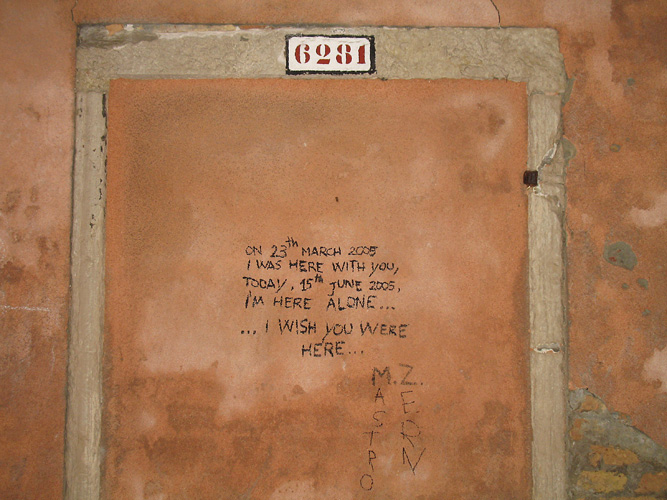 6281
ON 23th MARCH 2005
I WAS HERE WITH YOU,
TODAY, 15th JUNE 2005,
I'M HERE ALONE...
...I WISH YOU WERE
HERE...
M.Z.
MASTRO
ZERN